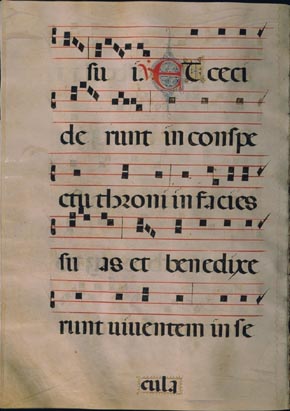 su i ℣ Et ceci
de runt in conspe
ctu throni in facies
su as et benedixe
runt uiuentem in se
cula